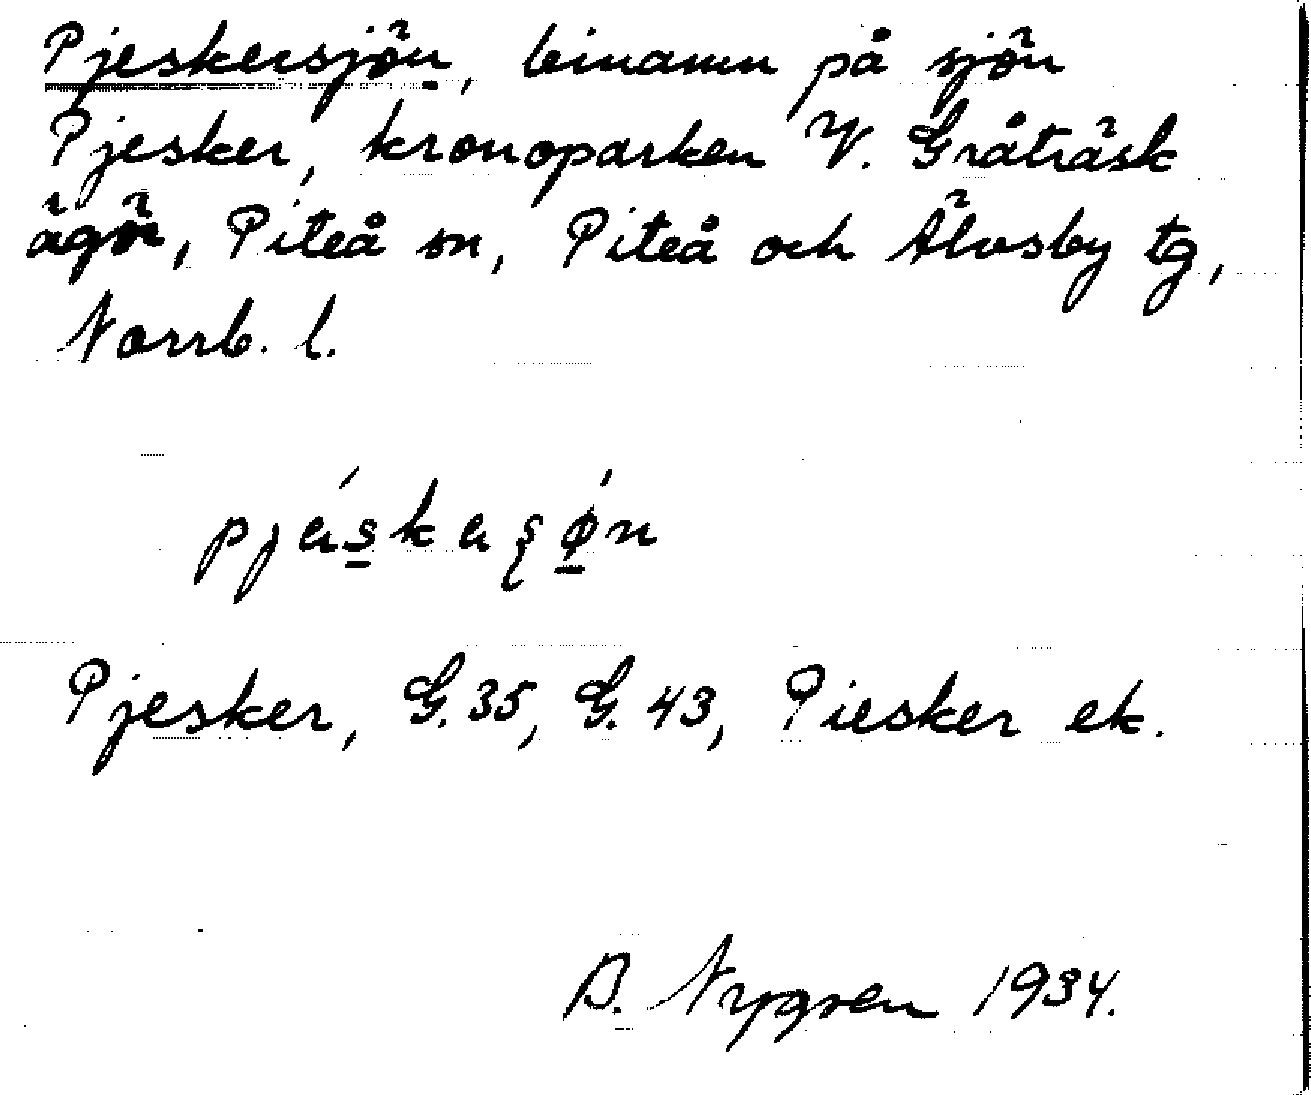 Pjeskersjön, binamn på sjön
Pjesker, kronoparken V. Gråträsk
ägor, Piteå sn, Piteå och Älvsby tg,
Norrb. l.
Pjesker, G. 35, G. 43, Piesker ek.
B. Nygren 1934.